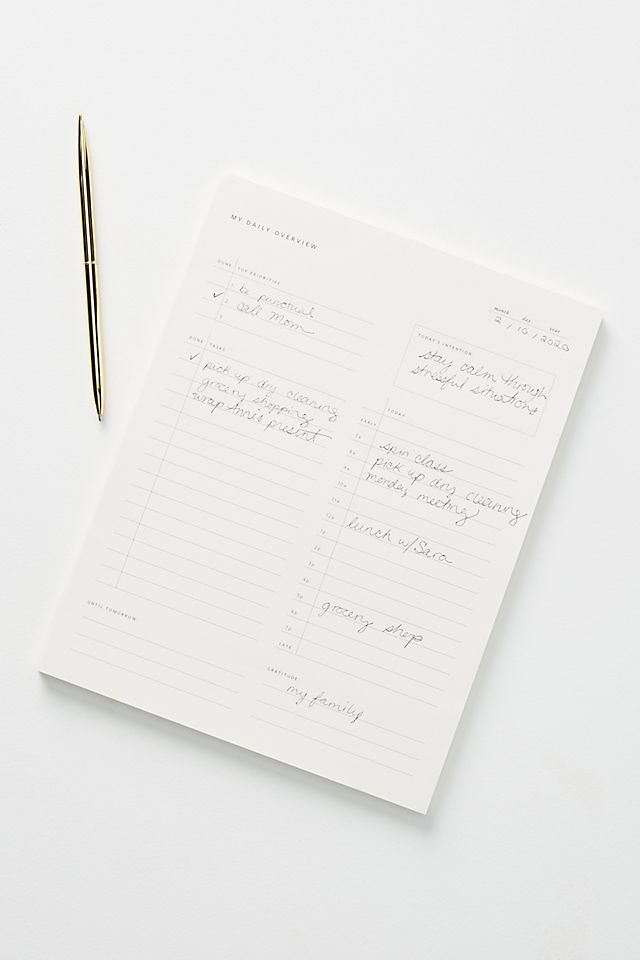 MY DAILY OVERVIEW
month day year
2 / 10 / 2020
DONE TOP PRIORITIES
1. be punctual
✓ 2. call mom
3.
DONE TASKS
✓ pick up dry cleaning
grocery shopping
wrap Anne's present
UNTIL TOMORROW:
TODAY'S INTENTION:
stay calm through
stressful situations
TODAY
EARLY
7a
8a spin class
9a pick up dry cleaning
10a monday meeting
11a
12p lunch w/Sara
1p
2p
3p
4p
5p
6p grocery shop
7p
LATE
GRATITUDE:
my family